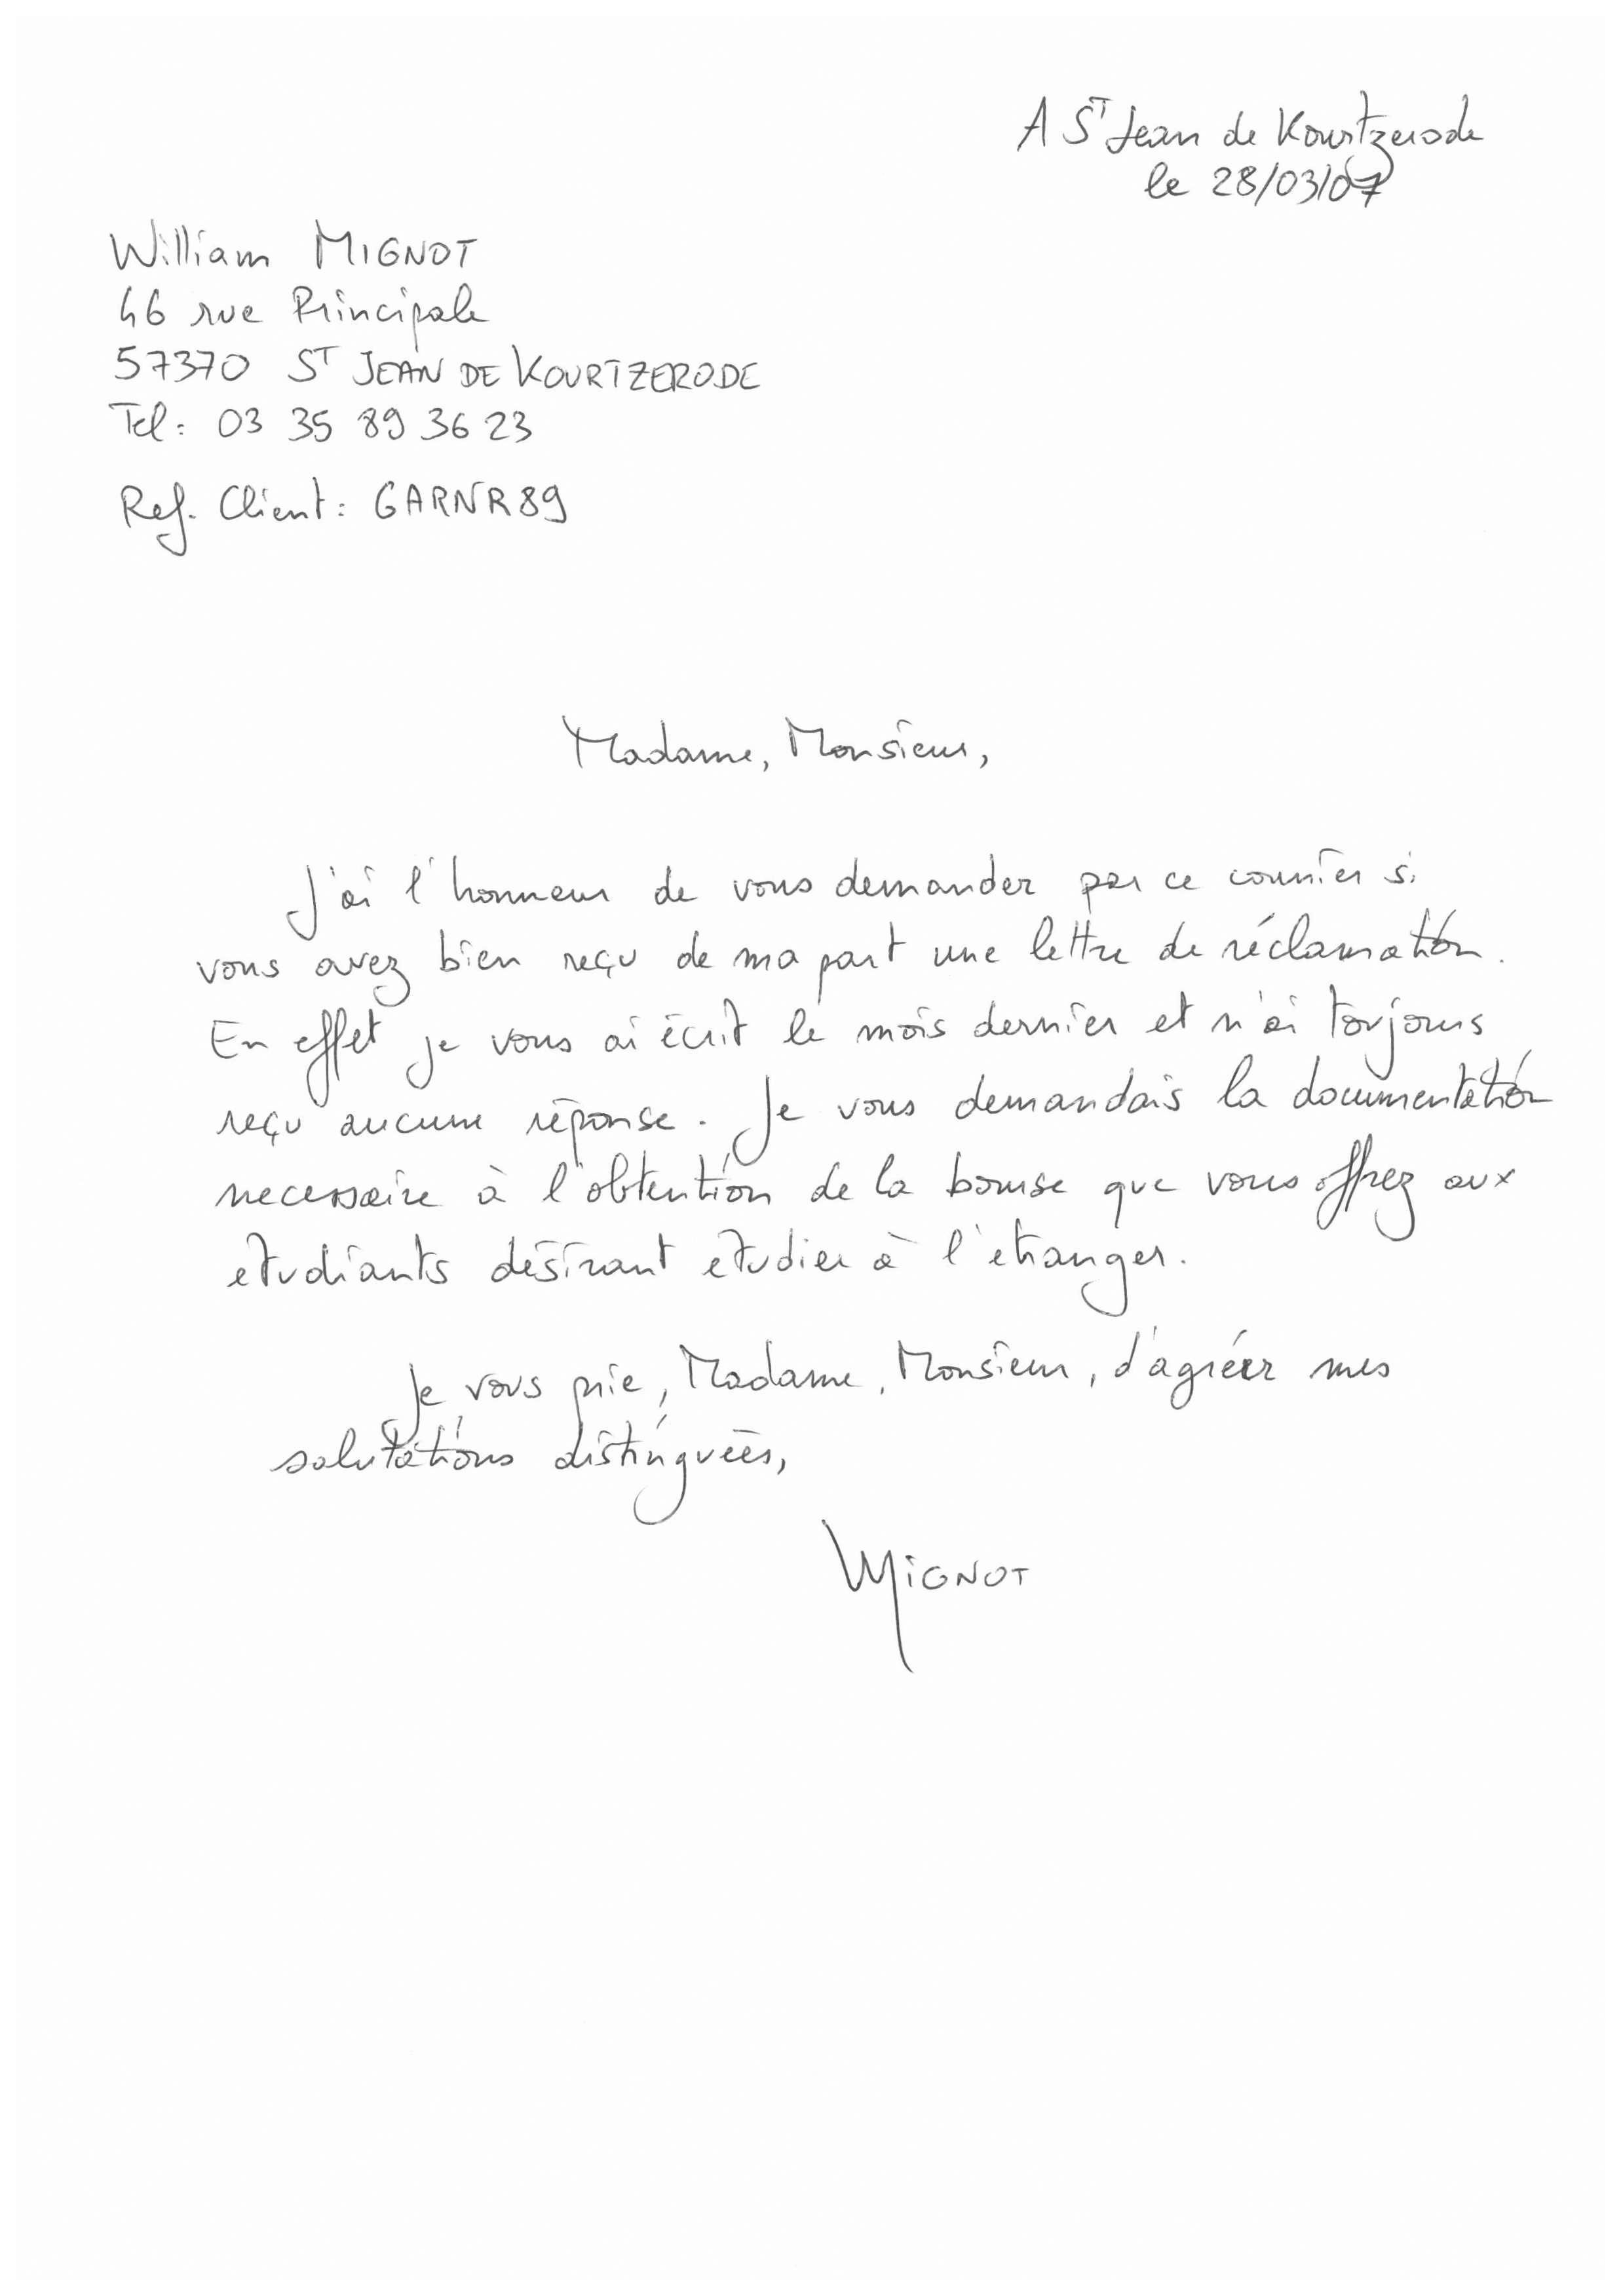 A St Jean de Kourtzerode
le 28/03/07
William MIGNOT
46 rue Principale
57370 ST JEAN DE KOURTZERODE
Tel: 03 35 89 36 23
Ref. Client: GARNR89
Madame, Monsieur,
J'ai l'honneur de vous demander par ce courrier si
vous avez bien reçu de ma part une lettre de réclamation.
En effet je vous ai écrit le mois dernier et n'ai toujours
reçu aucune réponse. Je vous demandais la documentation
necessaire à l'obtention de la bourse que vous offrez aux
etudiants désirant etudier à l'etranger.
Je vous prie, Madame, Monsieur, d'agréer mes
salutations distinguées,
MIGNOT